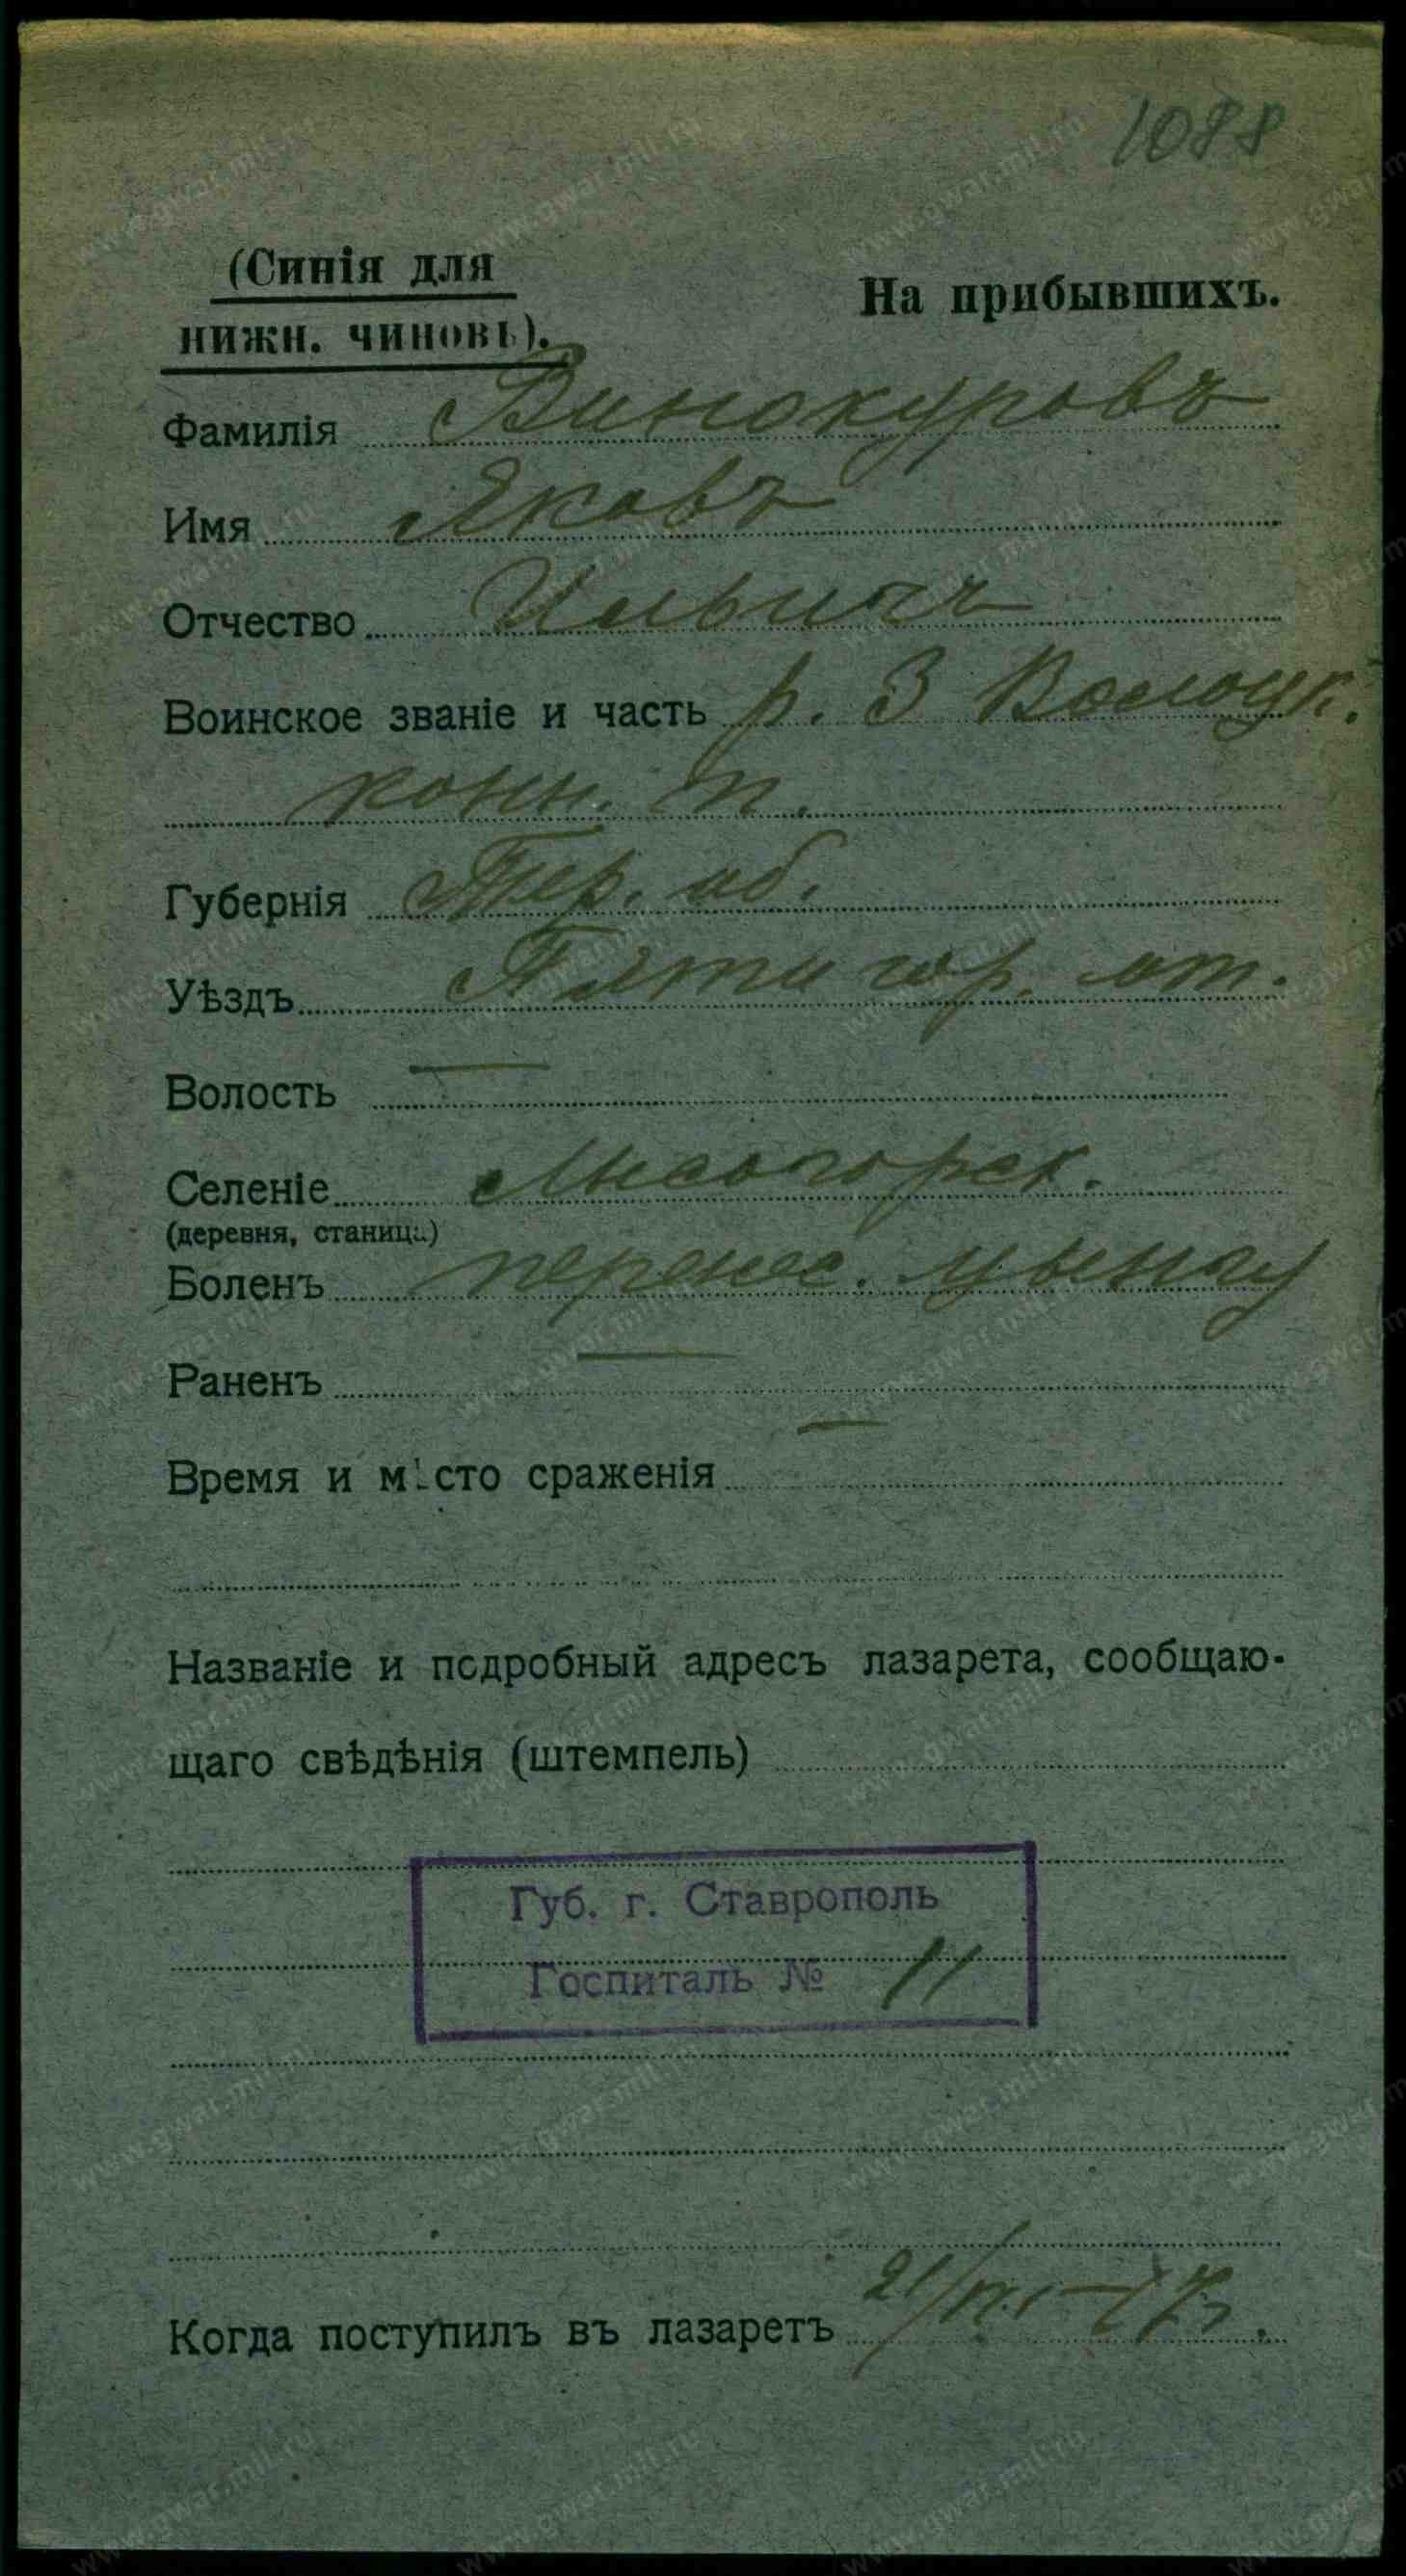 1088
(Синія для
На прибывшихъ.
нижн. чиновъ).
Фамилія Винокуровъ
Имя Яковъ
Отчество Ильичъ
Воинское званіе и часть р. 3 Волоцк.
конн. т.
Губернія Тер. об.
Уѣздъ Пятигор. от.
Волость —
Селеніе Лысогорск.
(деревня, станица)
Боленъ перенес. цынгу
Раненъ —
Время и мѣсто сраженія —
Названіе и подробный адресъ лазарета, сообщаю-
щаго свѣдѣнія (штемпель)
Губ. г. Ставрополь
Госпиталь № 11
Когда поступилъ въ лазаретъ 21/